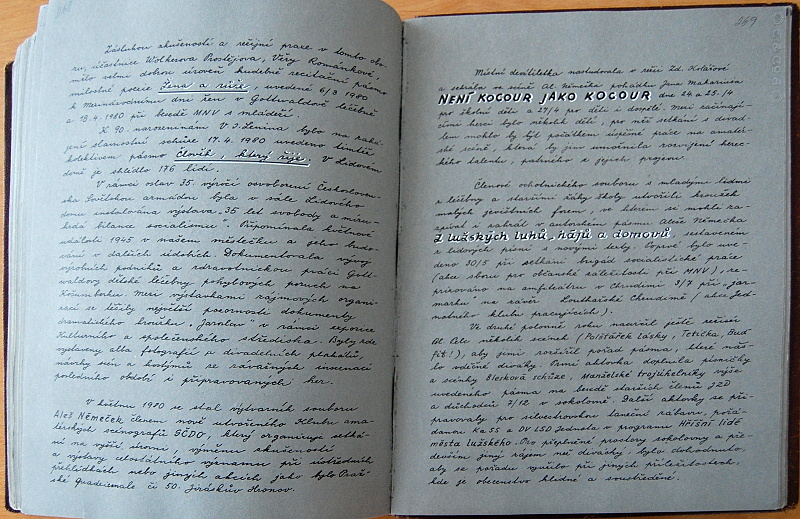 Zásluhou zkušeností a režijní praxe v tomto obo-
ru, účastnice Wolkerova Prostějova, Věry Románkové,
mělo velmi dobrou úroveň hudebně recitační pásmo
milostné poezie Žena a růže, uvedené 6/3 1980
k Mezinárodnímu dni žen v Gottwaldově léčebně
a 18.4. 1980 při besedě MNV s mládeží.
K 90. narozeninám V.I. Lenina bylo na zaha-
jení slavnostní schůze 17.4. 1980 uvedeno tímtéž
kolektivem pásmo Člověk, který žije. V Lidovém
domě je shlédlo 176 lidí.
V rámci oslav 35. výročí osvobození Českosloven-
ska Sovětskou armádou byla v sále Lidového
domu instalována výstava „35 let svobody a míru-
bilance socialismu". Připomínala květnové
události 1945 v našem městečku a jeho budo-
vání v dalších údobích. Dokumentovala vývoj
výrobních podniků a zdravotnickou práci Gott-
waldovy dětské léčebny pohybových poruch na
Košumberku. Mezi výstavkami zájmových organi-
zací se těšily největší pozornosti dokumenty
dramatického kroužku „Jaroslav" v rámci expozice
Kulturního a společenského střediska. Byly zde
vystaveny alba fotografií z divadelních plakátů,
návrhy scén a kostýmů ze závažných inscenací
posledního období i připravovaných her.
V květnu 1980 se stal výtvarník souboru
Aleš Němeček členem nově utvořeného Klubu ama-
térských scénografů SČDO, který organizuje setká-
ní na vyšší úrovni, výměnu zkušeností
a výstavy celostátního významu při ústředních
přehlídkách nebo jiných akcích jako bylo Praž-
ské Quadrienale či 50. Jiráskův Hronov.
269
Místní devítiletka nastudovala v režii Zd. Kolářové
a sehrála ve scéně Al. Němečka pohádku Jana Makariuse
NENÍ KOCOUR JAKO KOCOUR dne 24. a 25./4
pro školní děti a 27/4 pro děti i dospělé. Mezi začínají-
cími herci bylo několik dětí, pro něž setkání s divad-
lem mohlo by být počátkem úspěšné práce na amatér-
ské scéně, která by jim umožnila rozvíjení herec-
kého talentu, patrného z jejich projevu.
Členové ochotnického souboru s mladými lidmi
z léčebny a staršími žáky školy utvořili kroužek
malých jevištních forem, ve kterém se mohlo za-
zpívat i zahrát v autorském pásmu Aleše Němečka
Z lužských luhů, hájů a domovů, sestaveném
z lidových písní s novými texty. Poprvé bylo uve-
deno 30/5 při setkání brigád socialistické práce
(akce sboru pro občanské záležitosti při MNV), re-
prízováno na amfiteátru v Chrudimi 3/7 při „jar-
marku" na závěr Loutkářské Chrudimě (akce Jed-
notného klubu pracujících).
Ve druhé polovině roku nacvičil ještě režisér
Al. několik scének (Polštářek lásky, Tetička, Buď
fit!), aby jimi rozšířil pořad pásma, které naš-
lo vděčné diváky. První aktovka doplnila písničky
a scénky Blesková schůze, Manželské trojúhelníky výše
uvedeného pásma na besedě starších členů JZD
a důchodců 7/12 v sokolovně. Další aktovky se při-
pravovaly pro silvestrovskou taneční zábavu, pořá-
danou KaSS a DV LSD Jednota v programu Hříšní lidé
města lužského. Pro přeplněné prostory sokolovny a pře-
devším jiný zájem než divácký bylo dohodnuto,
aby se pořadu využilo při jiných příležitostech,
kde je obecenstvo klidné a soustředěné.